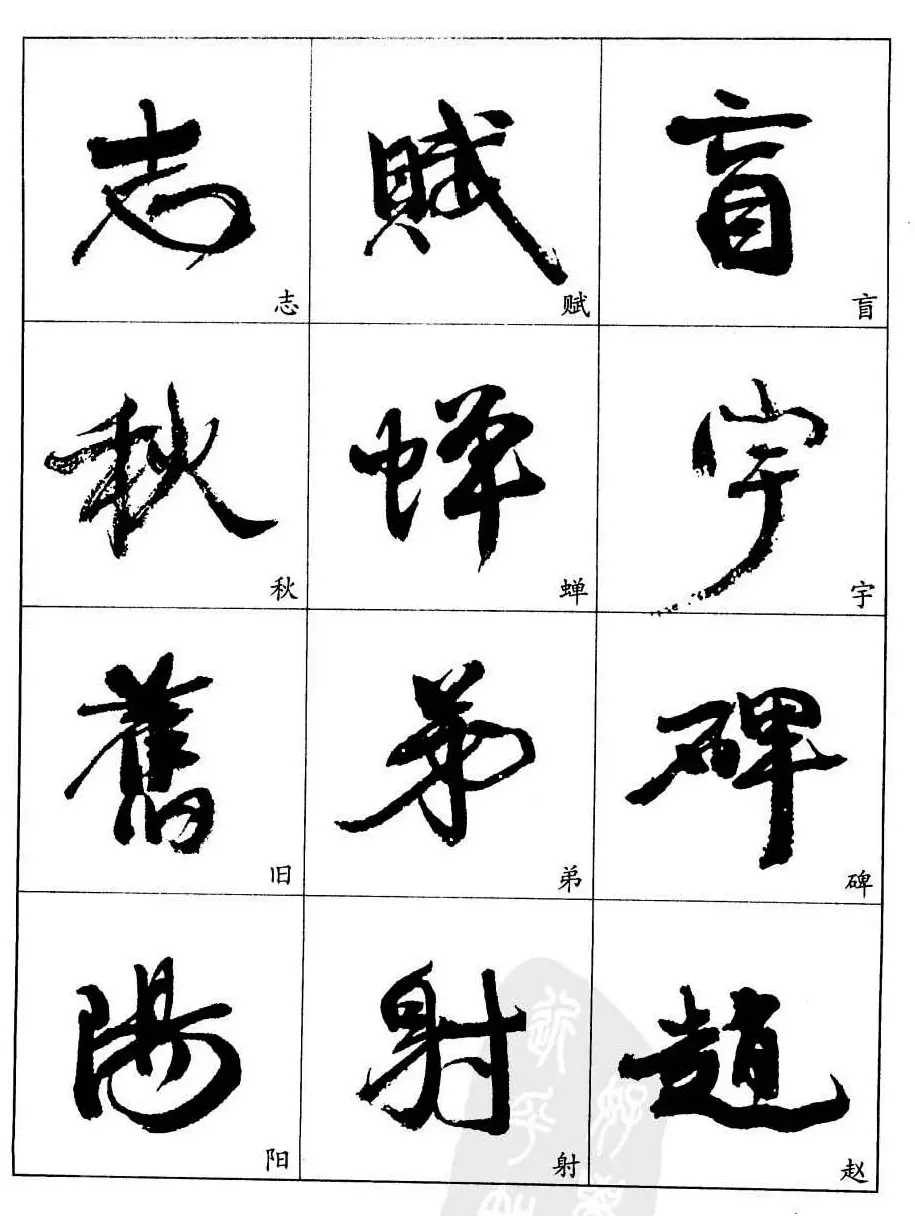 志 賦 盲
志 赋 盲
秋 蝉 宇
秋 蝉 宇
舊 弟 碑
旧 弟 碑
陽 射 趙
阳 射 赵